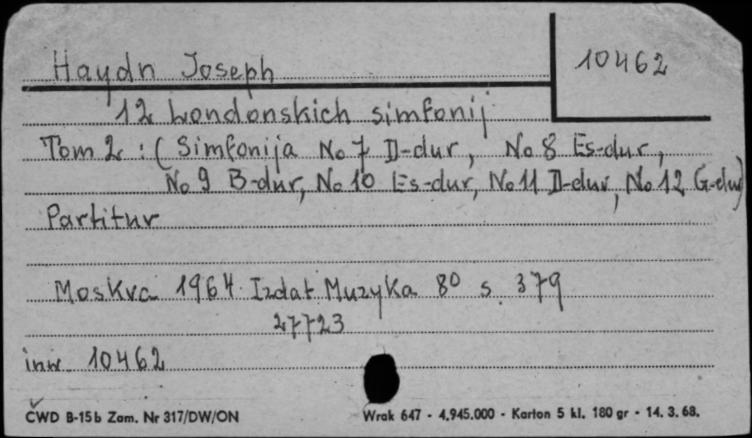 Haydn Joseph
10462
12 Londonskich simfonij
Tom 2 : ( Simfonija No 7 D-dur, No 8 Es-dur,
No 9 B-dur, No 10 Es-dur, No 11 D-dur, No 12 G-dur)
Partitur
Moskva 1964 Izdat Muzyka 8° s. 379
27723
inw. 10462
CWD B-15b Zam. Nr 317/DW/ON
Wrak 647 - 4.945.000 - Karton 5 kl. 180 gr - 14. 3. 68.